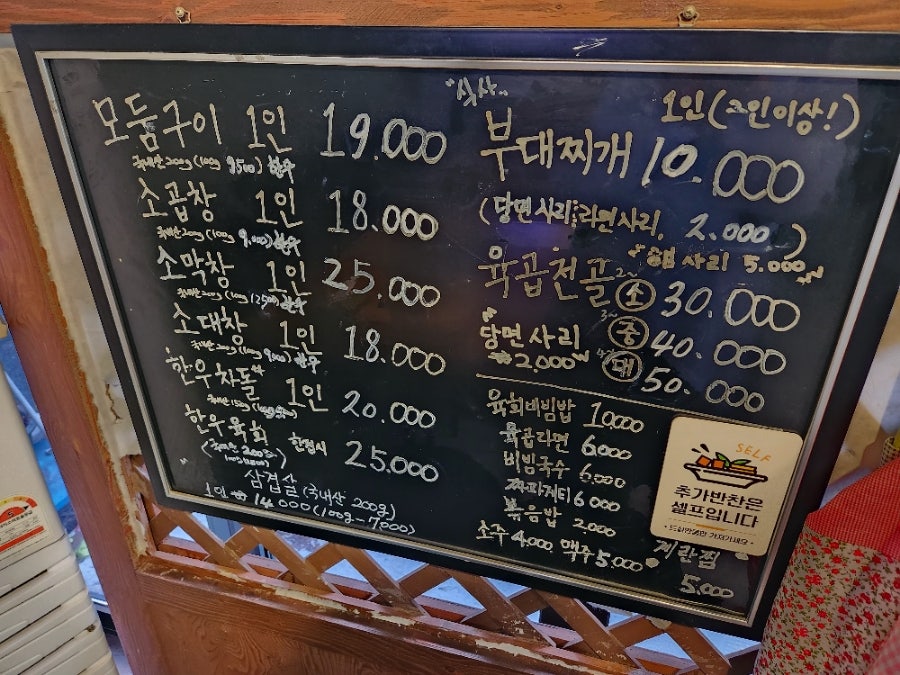 모둠구이 1인 19.000
국내산 200g (100g 9,500) 한우
소곱창 1인 18.000
국내산 200g (100g 9,000) 한우
소막창 1인 25.000
국내산 200g (100g 12500) 한우
소대창 1인 18.000
국내산 200g (100g 9,000) 한우
한우차돌 1인 20.000
국내산 150g
한우육회 한접시 25.000
삼겹살 (국내산 200g)
1인 14,000 (100g-7,000)
"식사"
1인 (2인이상!)
부대찌개 10.000
(당면사리, 라면사리, 2.000)
햄사리 5.000
육곱전골 소 30.000
중 40.000
대 50.000
당면사리
2.000
육회비빔밥 10000
육곱라면 6.000
비빔국수 6.000
짜파게티 6000
볶음밥 2.000
소주 4.000 맥주 5.000
계란찜
5.000
SELF
추가반찬은
셀프입니다